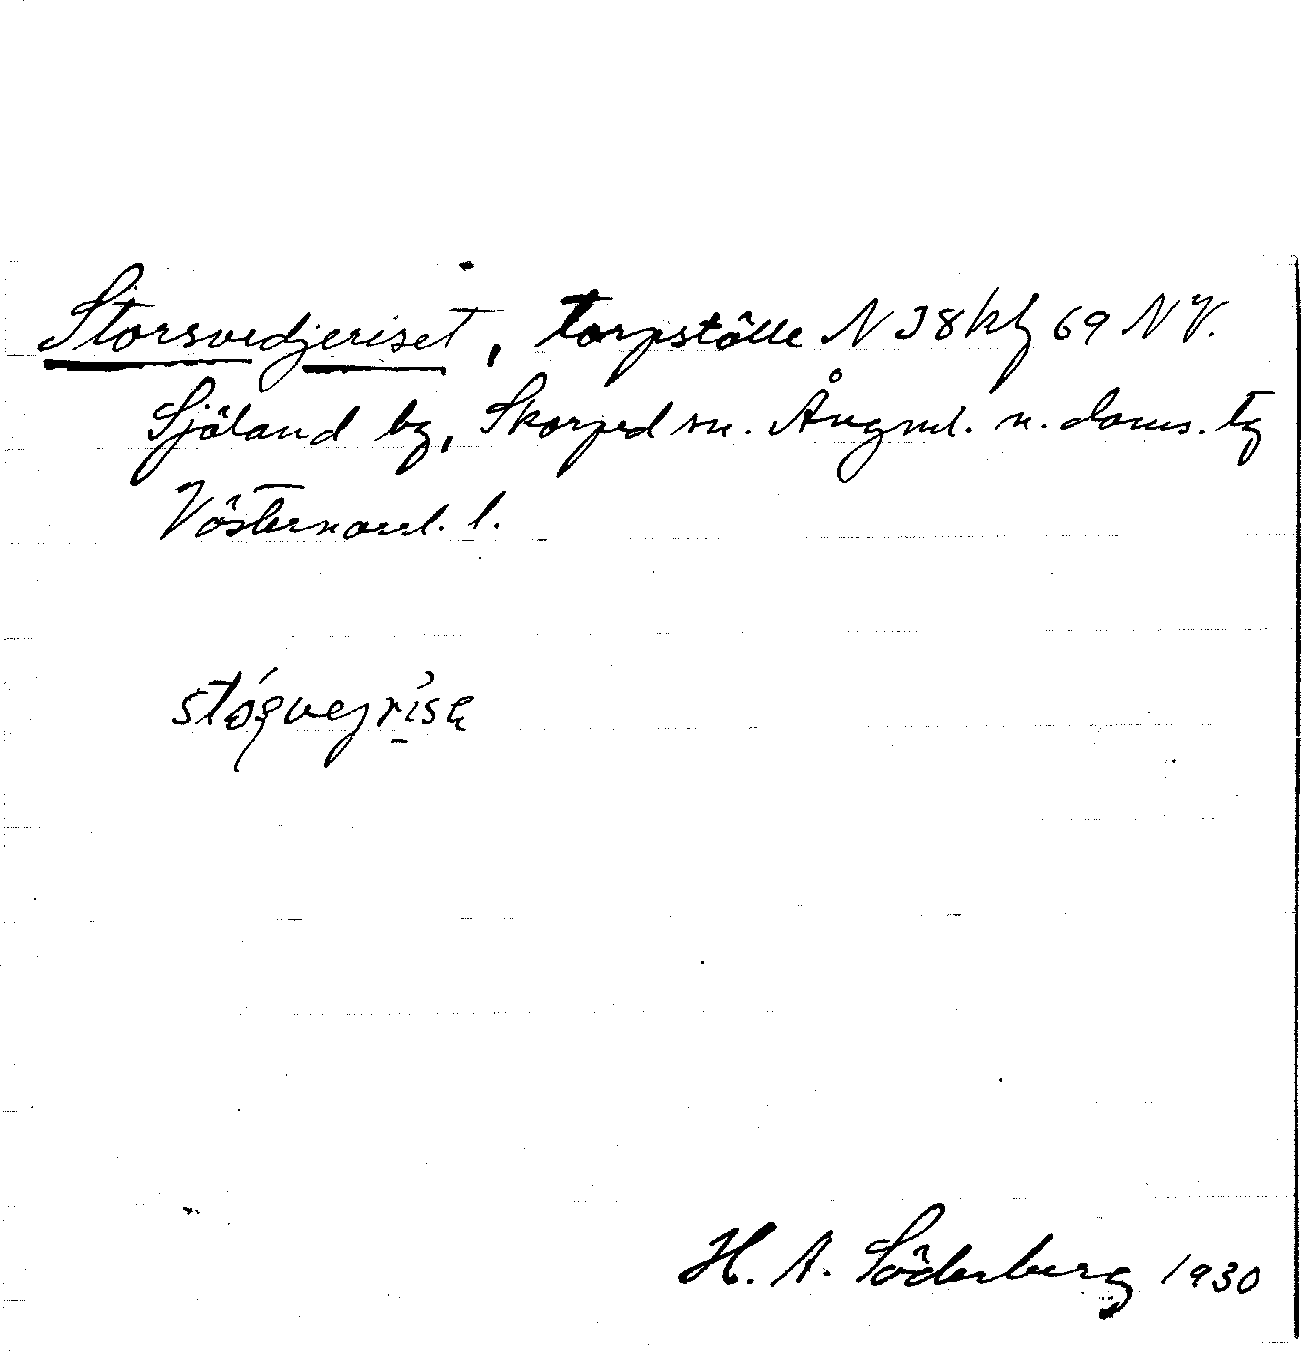 Storsvedjeriset, torpställe N 38 kbl 69 NV.
Själand by, Skorped sn. Ångml. n. doms. tg
Västernorrl. l.
H. A. Söderberg 1930